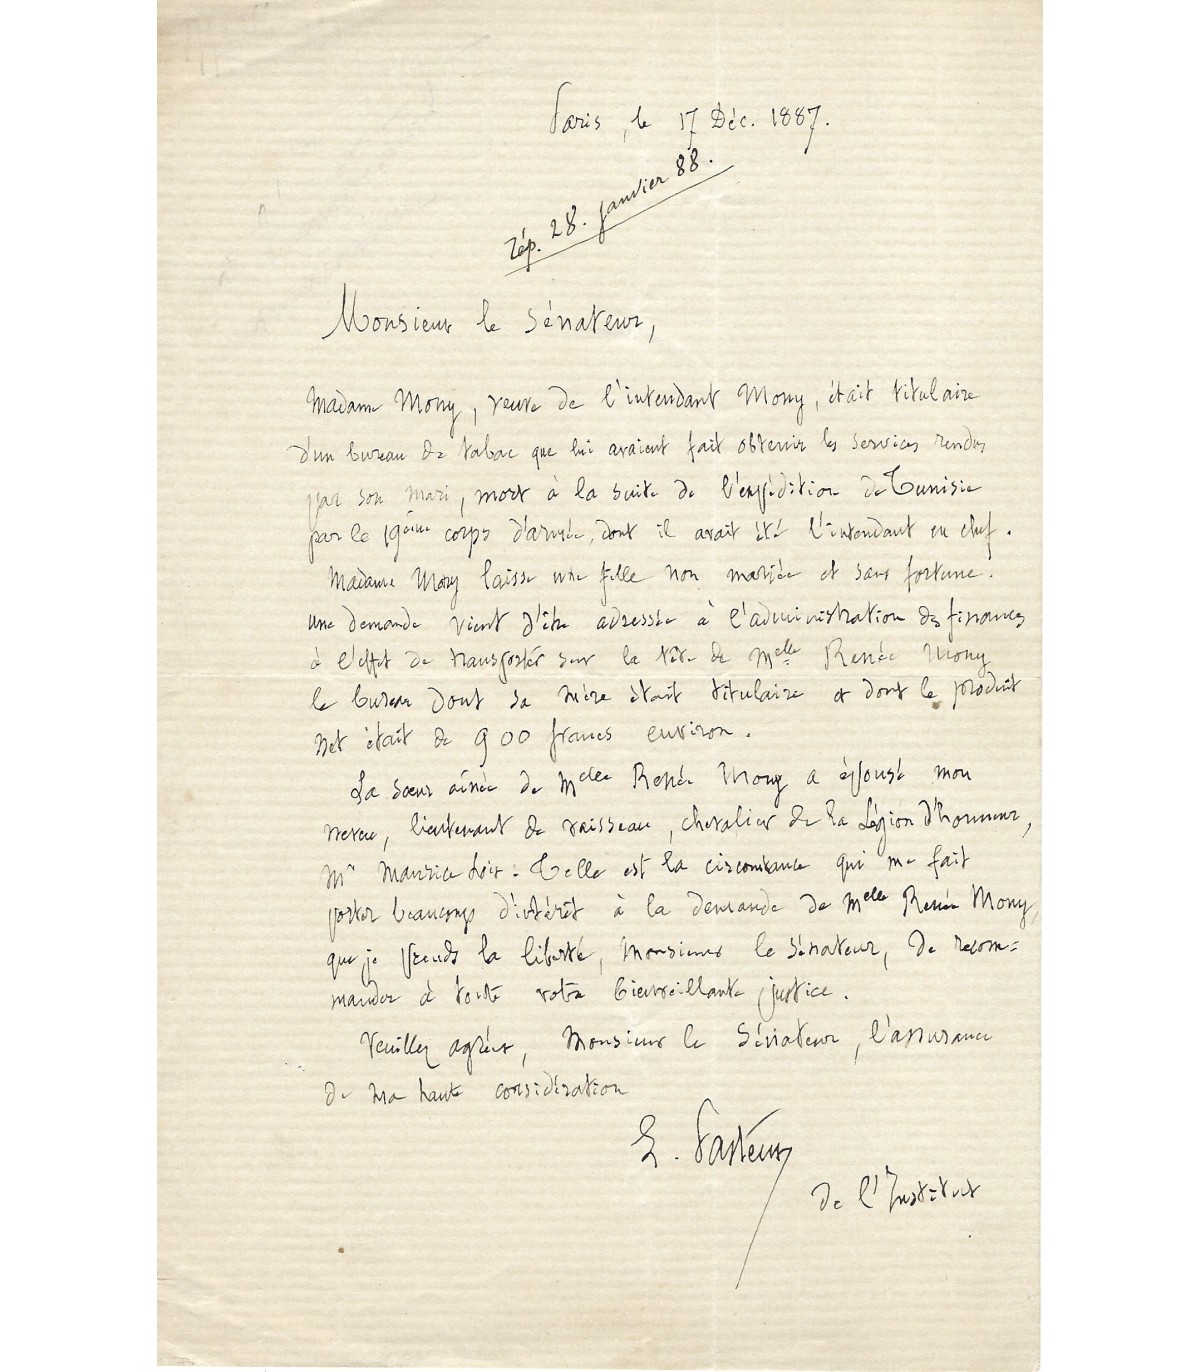 Paris, le 17 Déc. 1887.
rép. 28. janvier 88.
Monsieur le Sénateur,
Madame Mony, veuve de l'intendant Mony, était titulaire
d'un bureau de tabac que lui avaient fait obtenir les services rendus
par son mari, mort à la suite de l'expédition de Tunisie
par le 19ème corps d'armée, dont il avait été l'intendant en chef.
Madame Mony laisse une fille non mariée et sans fortune.
Une demande vient d'être adressée à l'administration des finances
à l'effet de transporter sur la tête de Melle Renée Mony
le bureau dont sa mère était titulaire et dont le produit
net était de 900 francs environ.
La sœur aînée de Melle Renée Mony a épousé mon
neveu, lieutenant de vaisseau, chevalier de la Légion d'honneur,
Mr Maurice Loir. Telle est la circonstance qui me fait
porter beaucoup d'intérêt à la demande de Melle Renée Mony,
que je prends la liberté, Monsieur le Sénateur, de recom=
mander à toute votre bienveillante justice.
Veuillez agréer, Monsieur le Sénateur, l'assurance
de ma haute considération
L. Pasteur
de l'Institut